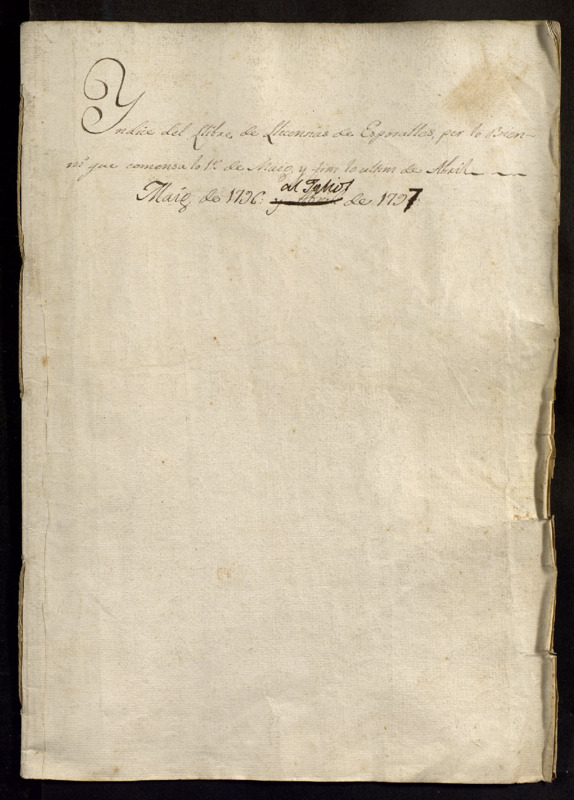 Yndice del Llibre de Llicencias de Esposalles, per lo Bien-
ni que comensa lo 1r. de Maig, y fini lo ultim de Abril
al
Maig de 1796: y Abril de 1797